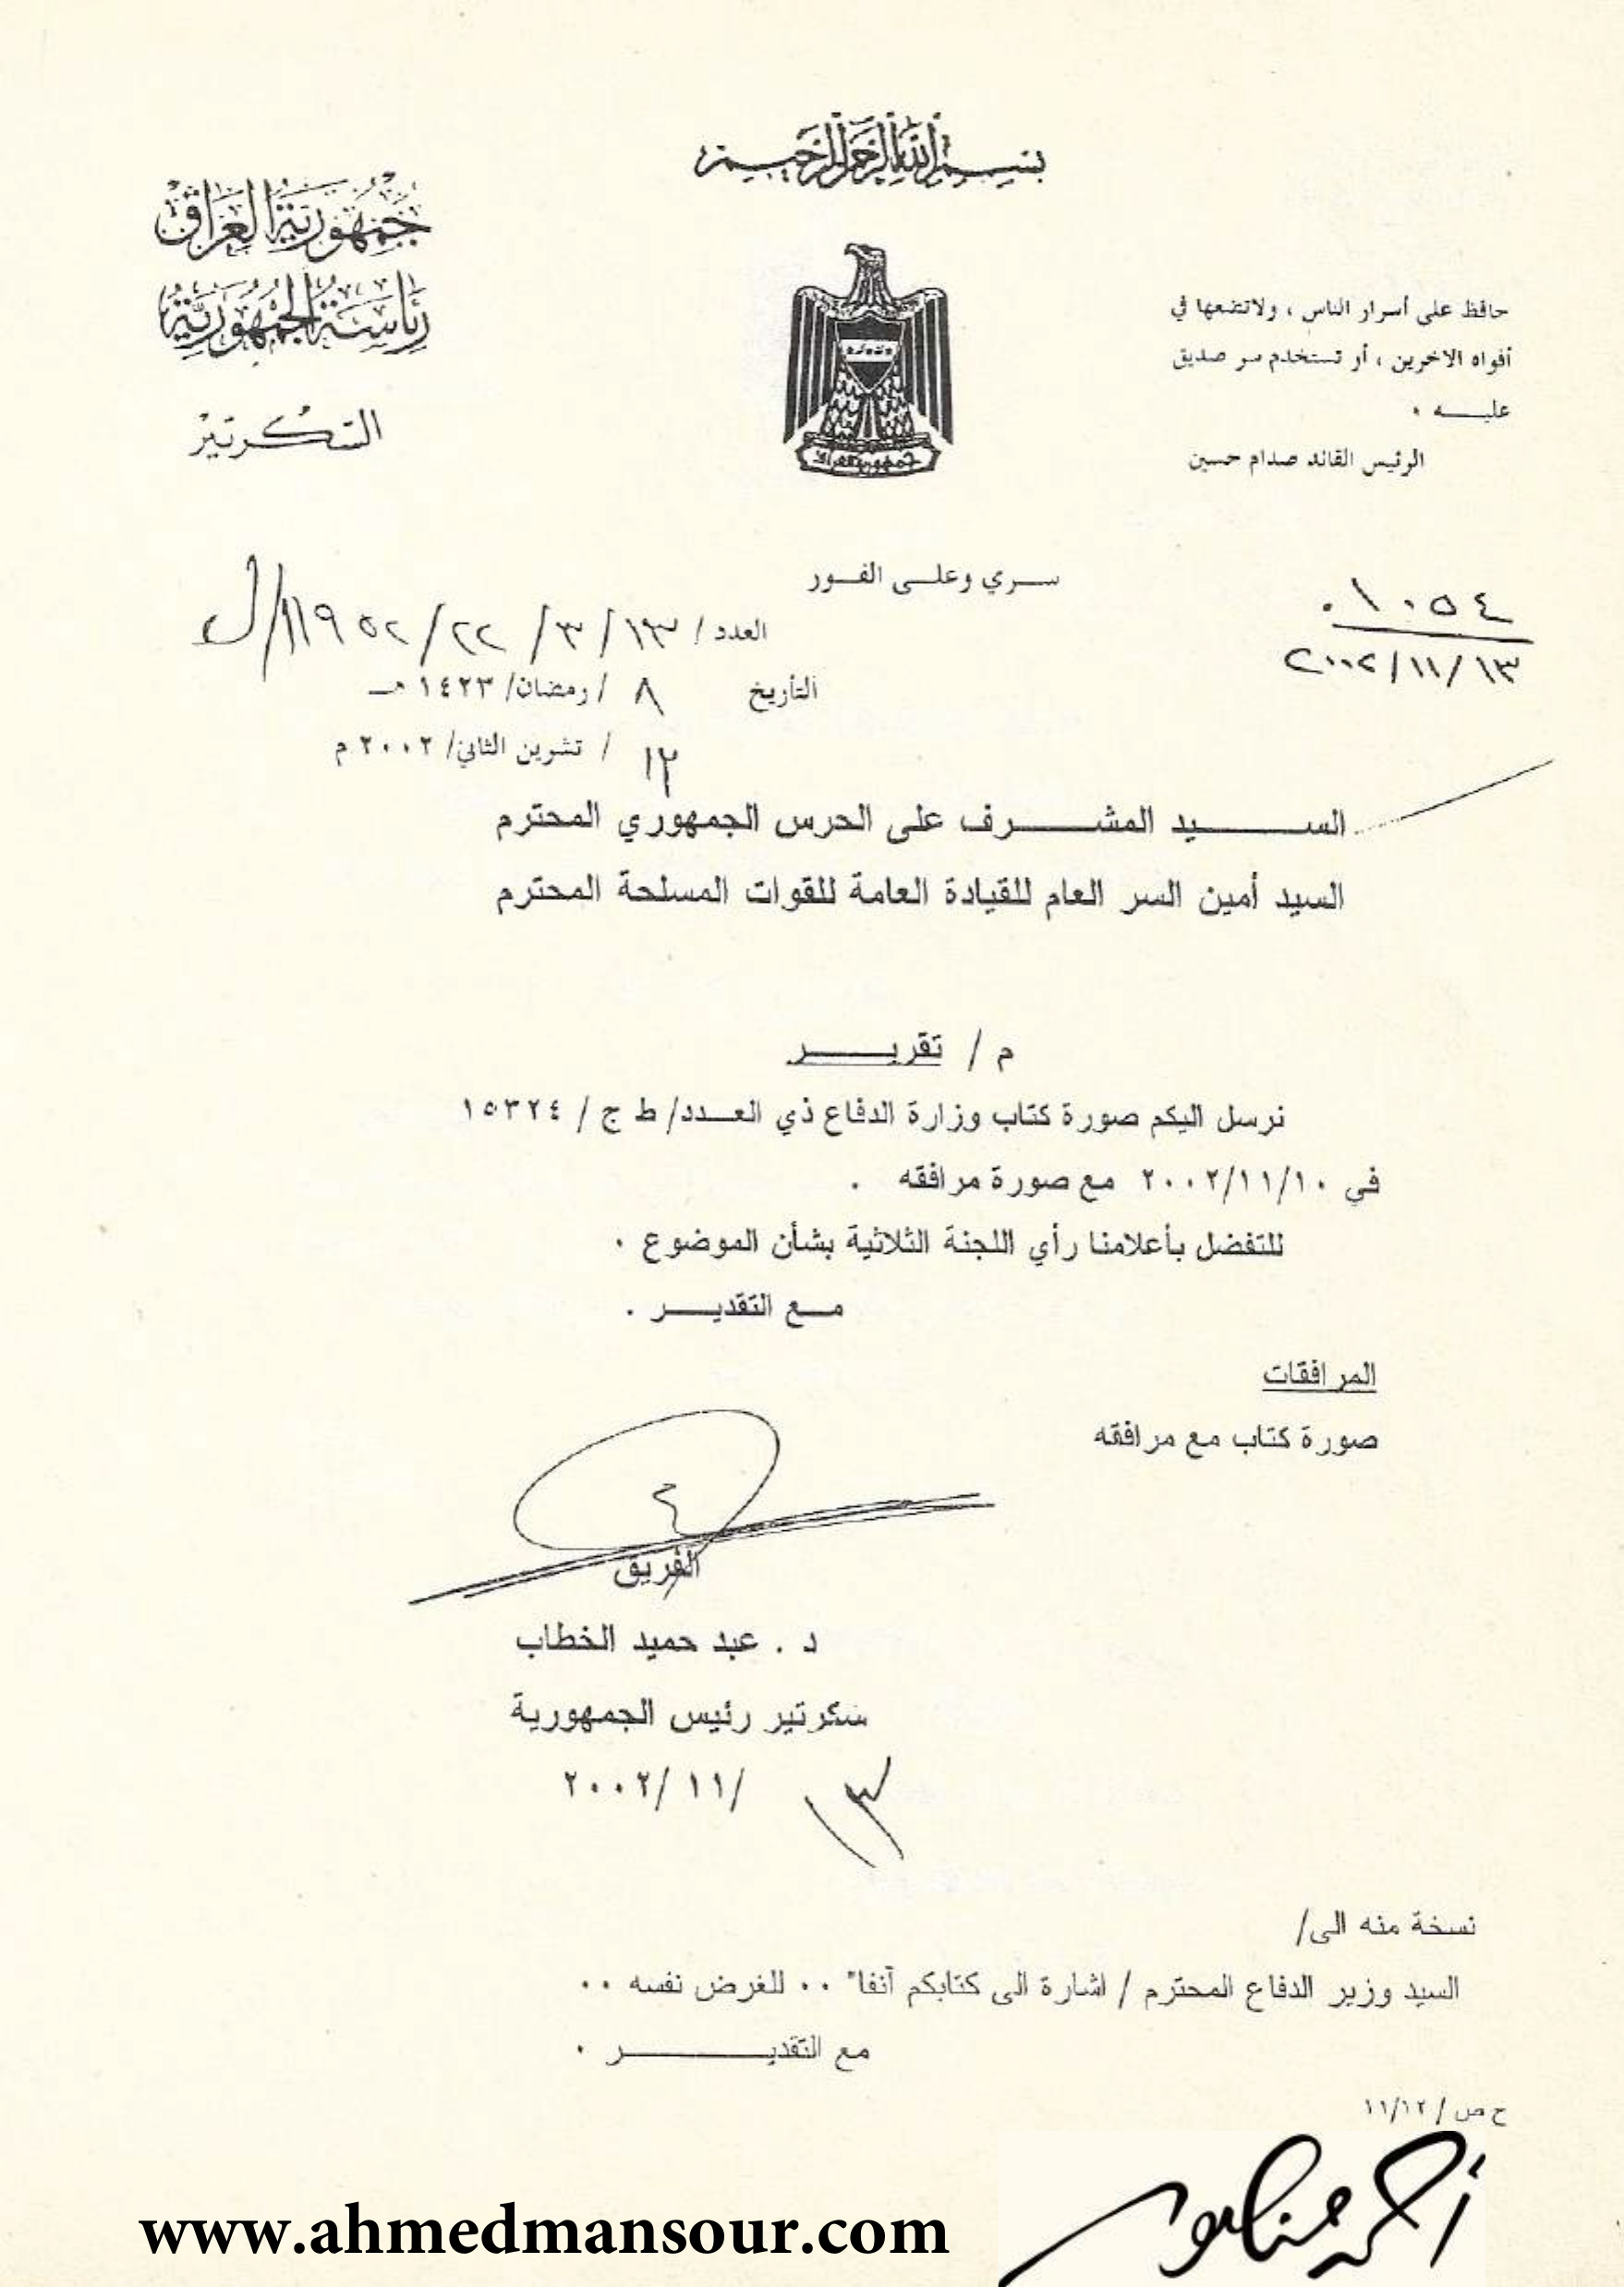 بسم الله الرحمن الرحيم
جمهورية العراق
رئاسة الجمهورية
السكرتير
حافظ على أسرار الناس ، ولاتضعها في
أفواه الاخرين ، أو تستخدم سر صديق
عليــه ٠
الرئيس القائد صدام حسين
جمهورية العراق
سـري وعلـى الفـور
١٠٥٤
٢٠٠٢/١١/١٣
العدد / ١٣ / ٣ / ٢٢ /
التأريخ ٨ / رمضان/ ١٤٢٣ هـ
١٢ / تشرين الثاني/ ٢٠٠٢ م
الســـيد المشـــرف على الحرس الجمهوري المحترم
السيد أمين السر العام للقيادة العامة للقوات المسلحة المحترم
م / تقريـــر
نرسل اليكم صورة كتاب وزارة الدفاع ذي العـدد/ ط ج / ١٥٣٢٤
في ٢٠٠٢/١١/١٠ مع صورة مرافقه .
للتفضل بأعلامنا رأي اللجنة الثلاثية بشأن الموضوع ٠
مـع التقديـر .
المرافقات
صورة كتاب مع مرافقه
الفريق
د . عبد حميد الخطاب
سكرتير رئيس الجمهورية
١٣ /١١ /٢٠٠٢
نسخة منه الى/
السيد وزير الدفاع المحترم / اشارة الى كتابكم آنفا" ٠٠ للغرض نفسه ٠٠
مع التقديـــر ٠
ح ص / ١١/١٢
أحمد منصور
www.ahmedmansour.com